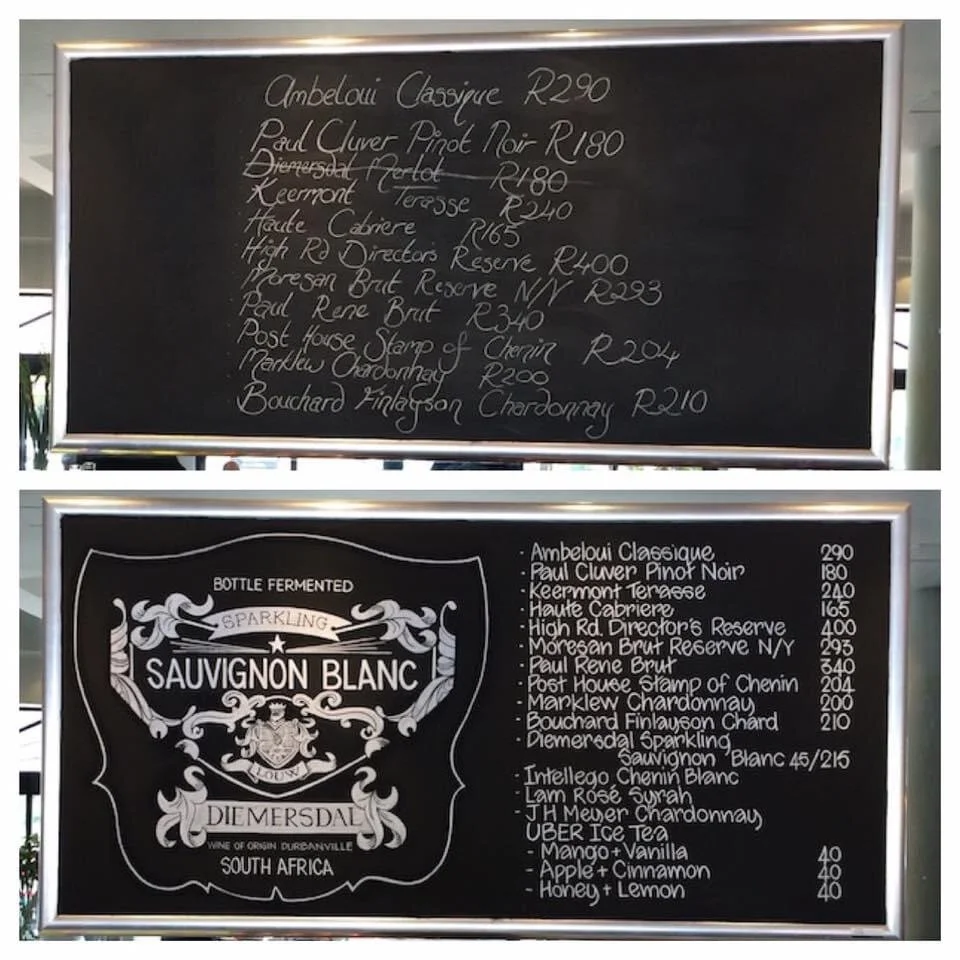 Ambeloui Classique R290
Paul Cluver Pinot Noir R180
Diemersdal Merlot R180
Keermont Terasse R240
Haute Cabriere R165
High Rd Directors Reserve R400
Moresan Brut Reserve N/V R293
Paul Rene Brut R340
Post House Stamp of Chenin R204
Marklew Chardonnay R200
Bouchard Finlayson Chardonnay R210
BOTTLE FERMENTED
SPARKLING
SAUVIGNON BLANC
LOUW
DIEMERSDAL
WINE OF ORIGIN DURBANVILLE
SOUTH AFRICA
· Ambeloui Classique 290
· Paul Cluver Pinot Noir 180
· Keermont Terasse 240
· Haute Cabriere 165
· High Rd. Director's Reserve 400
· Moresan Brut Reserve N/Y 293
· Paul Rene Brut 340
· Post House Stamp of Chenin 204
· Marklew Chardonnay 200
· Bouchard Finlayson Chard 210
· Diemersdal Sparkling
Sauvignon Blanc 45/215
· Intellego Chenin Blanc
· Lam Rosé Syrah
· J H Meyer Chardonnay
UBER Ice Tea
- Mango + Vanilla 40
- Apple + Cinnamon 40
- Honey + Lemon 40